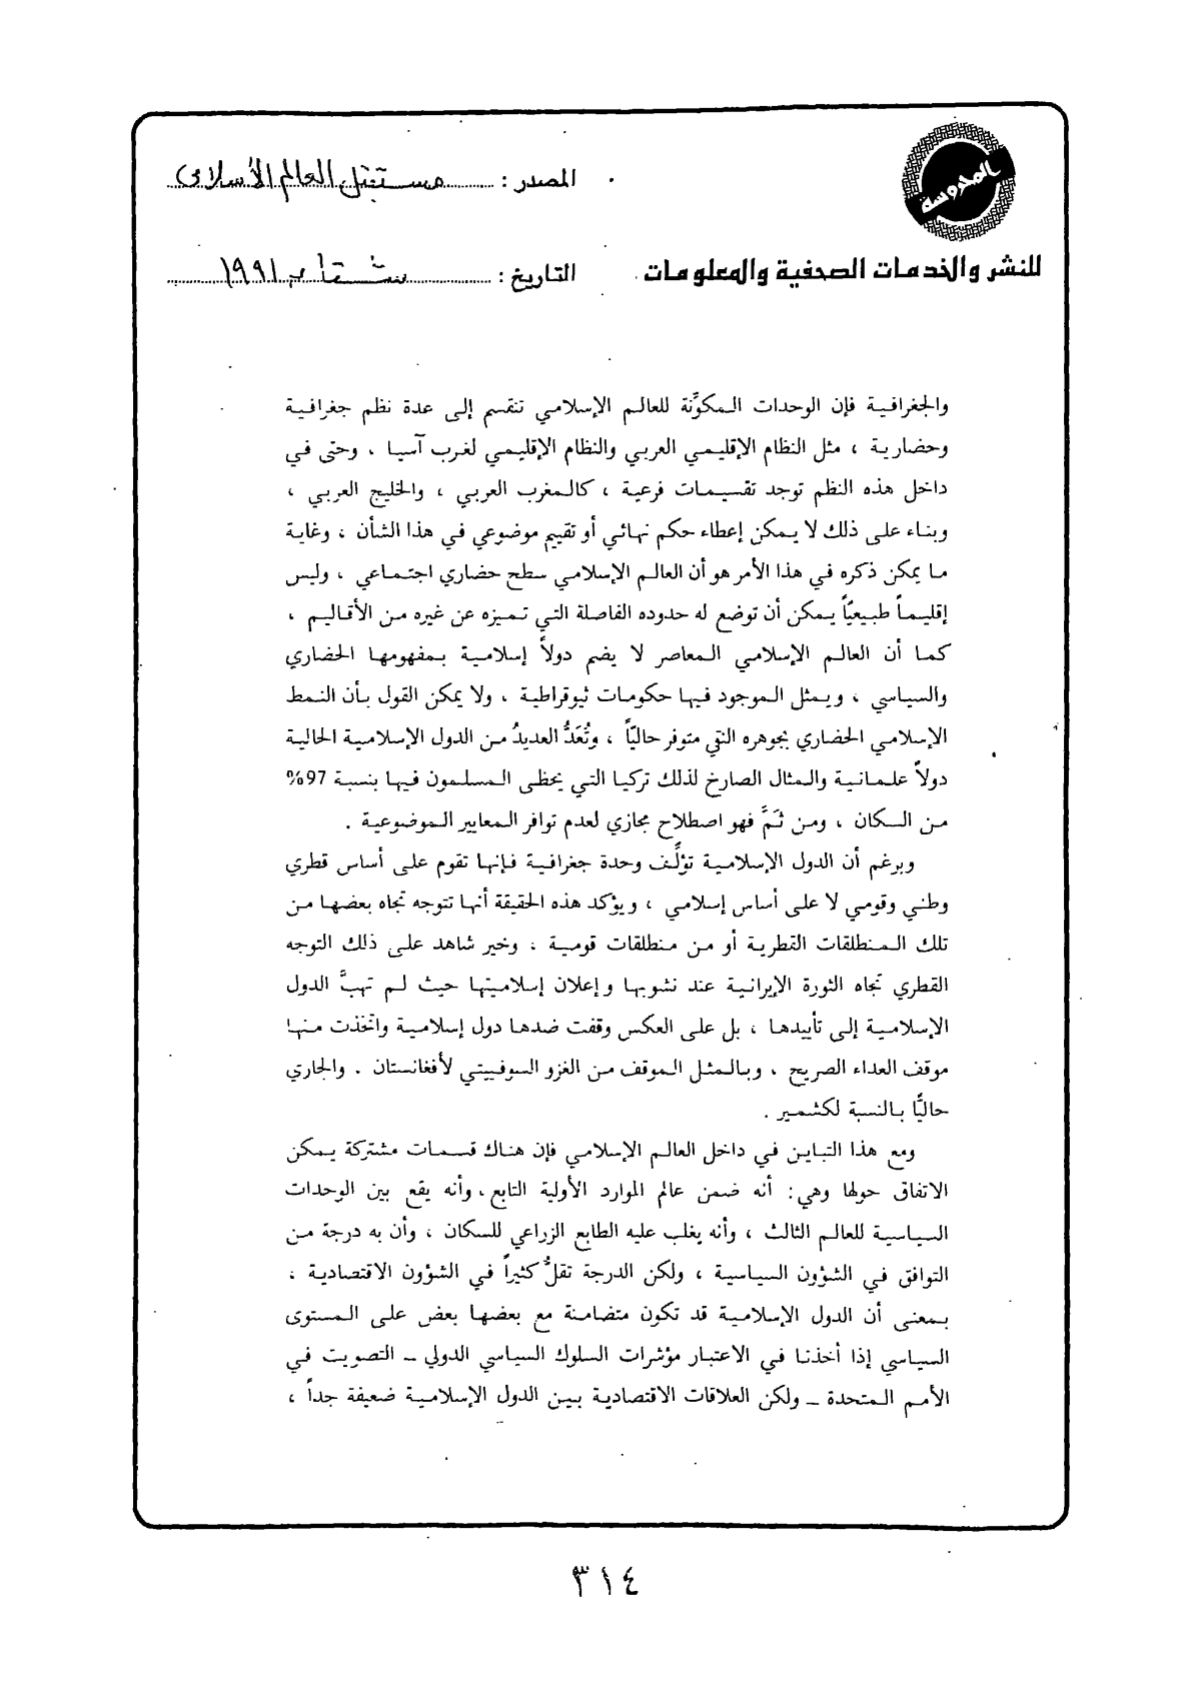 المحروسة
للنشر والخدمات الصحفية والمعلومات
المصدر : مستقبل العالم الأسلامى
التاريخ : شتاء ١٩٩١
والجغرافية فإن الوحدات المكوِّنة للعالم الإسلامي تنقسم إلى عدة نظم جغرافية
وحضارية ، مثل النظام الإقليمي العربي والنظام الإقليمي لغرب آسيا ، وحتى في
داخل هذه النظم توجد تقسيمات فرعية ، كالمغرب العربي ، والخليج العربي ،
وبناء على ذلك لا يمكن إعطاء حكم نهائي أو تقييم موضوعي في هذا الشأن ، وغاية
ما يمكن ذكره في هذا الأمر هو أن العالم الإسلامي سطح حضاري اجتماعي ، وليس
إقليماً طبيعيّاً يمكن أن توضع له حدوده الفاصلة التي تميزه عن غيره من الأقاليم ،
كما أن العالم الإسلامي المعاصر لا يضم دولاً إسلامية بمفهومها الحضاري
والسياسي ، ويمثل الموجود فيها حكومات ثيوقراطية ، ولا يمكن القول بأن النمط
الإسلامي الحضاري بجوهره النقي متوفر حاليّاً ، وتُعَدُّ العديدُ من الدول الإسلامية الحالية
دولاً علمانية والمثال الصارخ لذلك تركيا التي يحظى المسلمون فيها بنسبة 97%
من السكان ، ومن ثَمَّ فهو اصطلاح مجازي لعدم توافر المعايير الموضوعية .
وبرغم أن الدول الإسلامية تؤلِّف وحدة جغرافية فإنها تقوم على أساس قطري
وطني وقومي لا على أساس إسلامي ، ويؤكد هذه الحقيقة أنها تتوجه تجاه بعضها من
تلك المنطلقات القطرية أو من منطلقات قومية ، وخير شاهد على ذلك التوجه
القطري تجاه الثورة الإيرانية عند نشوبها وإعلان إسلاميتها حيث لم تهبَّ الدول
الإسلامية إلى تأييدها ، بل على العكس وقفت ضدها دول إسلامية واتخذت منها
موقف العداء الصريح ، وبالمثل الموقف من الغزو السوفييتي لأفغانستان . والجاري
حاليًّا بالنسبة لكشمير .
ومع هذا التباين في داخل العالم الإسلامي فإن هناك قسمات مشتركة يمكن
الاتفاق حولها وهي: أنه ضمن عالم الموارد الأولية التابع، وأنه يقع بين الوحدات
السياسية للعالم الثالث ، وأنه يغلب عليه الطابع الزراعي للسكان ، وأن به درجة من
التوافق في الشؤون السياسية ، ولكن الدرجة تقلُّ كثيراً في الشؤون الاقتصادية ،
بمعنى أن الدول الإسلامية قد تكون متضامنة مع بعضها بعض على المستوى
السياسي إذا أخذنا في الاعتبار مؤشرات السلوك السياسي الدولي – التصويت في
الأمم المتحدة – ولكن العلاقات الاقتصادية بين الدول الإسلامية ضعيفة جداً ،
٣١٤